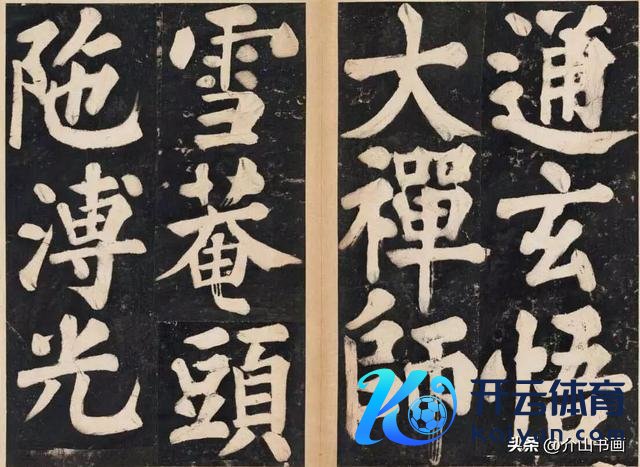 通玄悟
大禪師
雪菴頭
陁溥光
开云体育
Kaiyun.com
头条 @介山书画